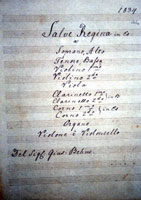 1839
Salve Regina in C
a
Soprano, Alto
Tenore, Basso
Violino 1mo
Violino 2do
Viola
Clarinetto 1mo
Clarinetto 2do in C
Corno 1mo
Corno 2do in C
Organo
Violone e Violoncello
Del Sigr. Gius. Behm